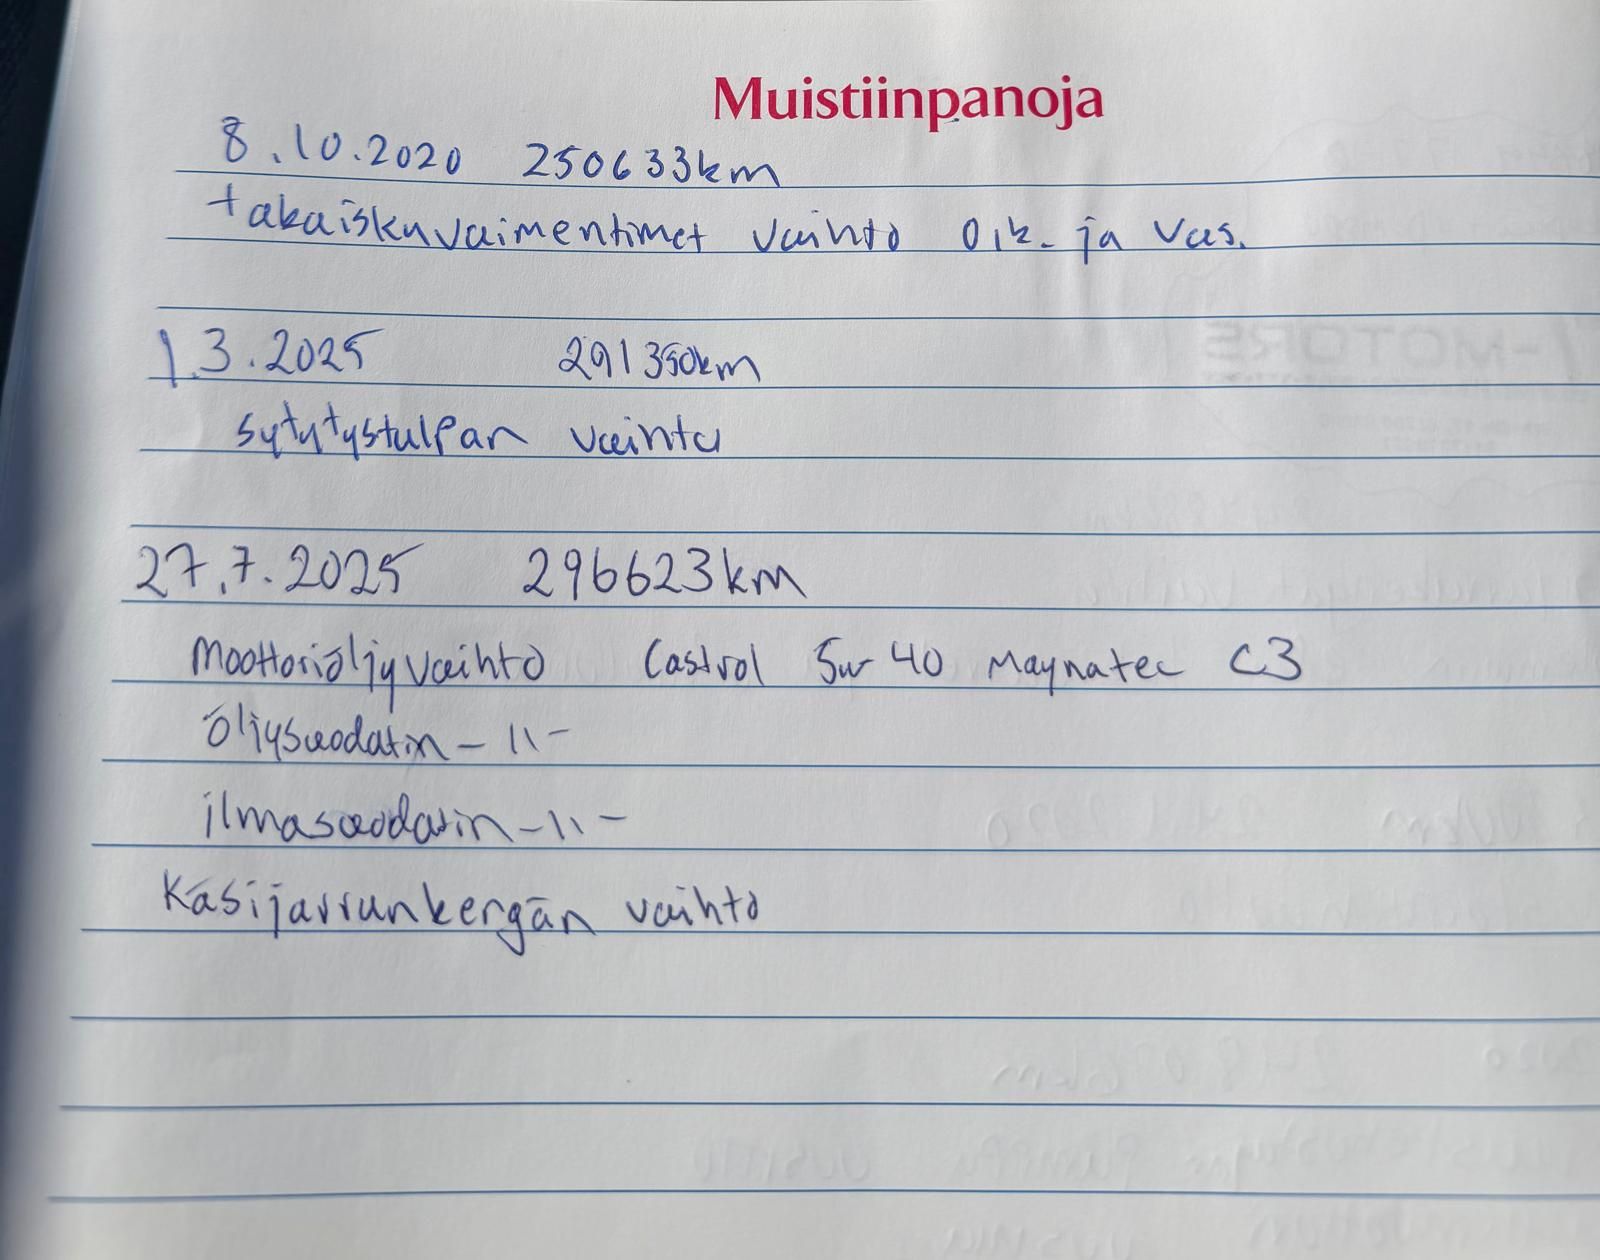 Muistiinpanoja
8.10.2020 250633km
takaiskuvaimentimet vaihto oik. ja vas.
1.3.2025 291350km
sytytystulpan vaihto
27.7.2025 296623km
Moottoriöljyvaihto Castrol 5w40 Maynatec C3
öljysuodatin -11-
ilmasuodatin -11-
Käsijarrunkengän vaihto